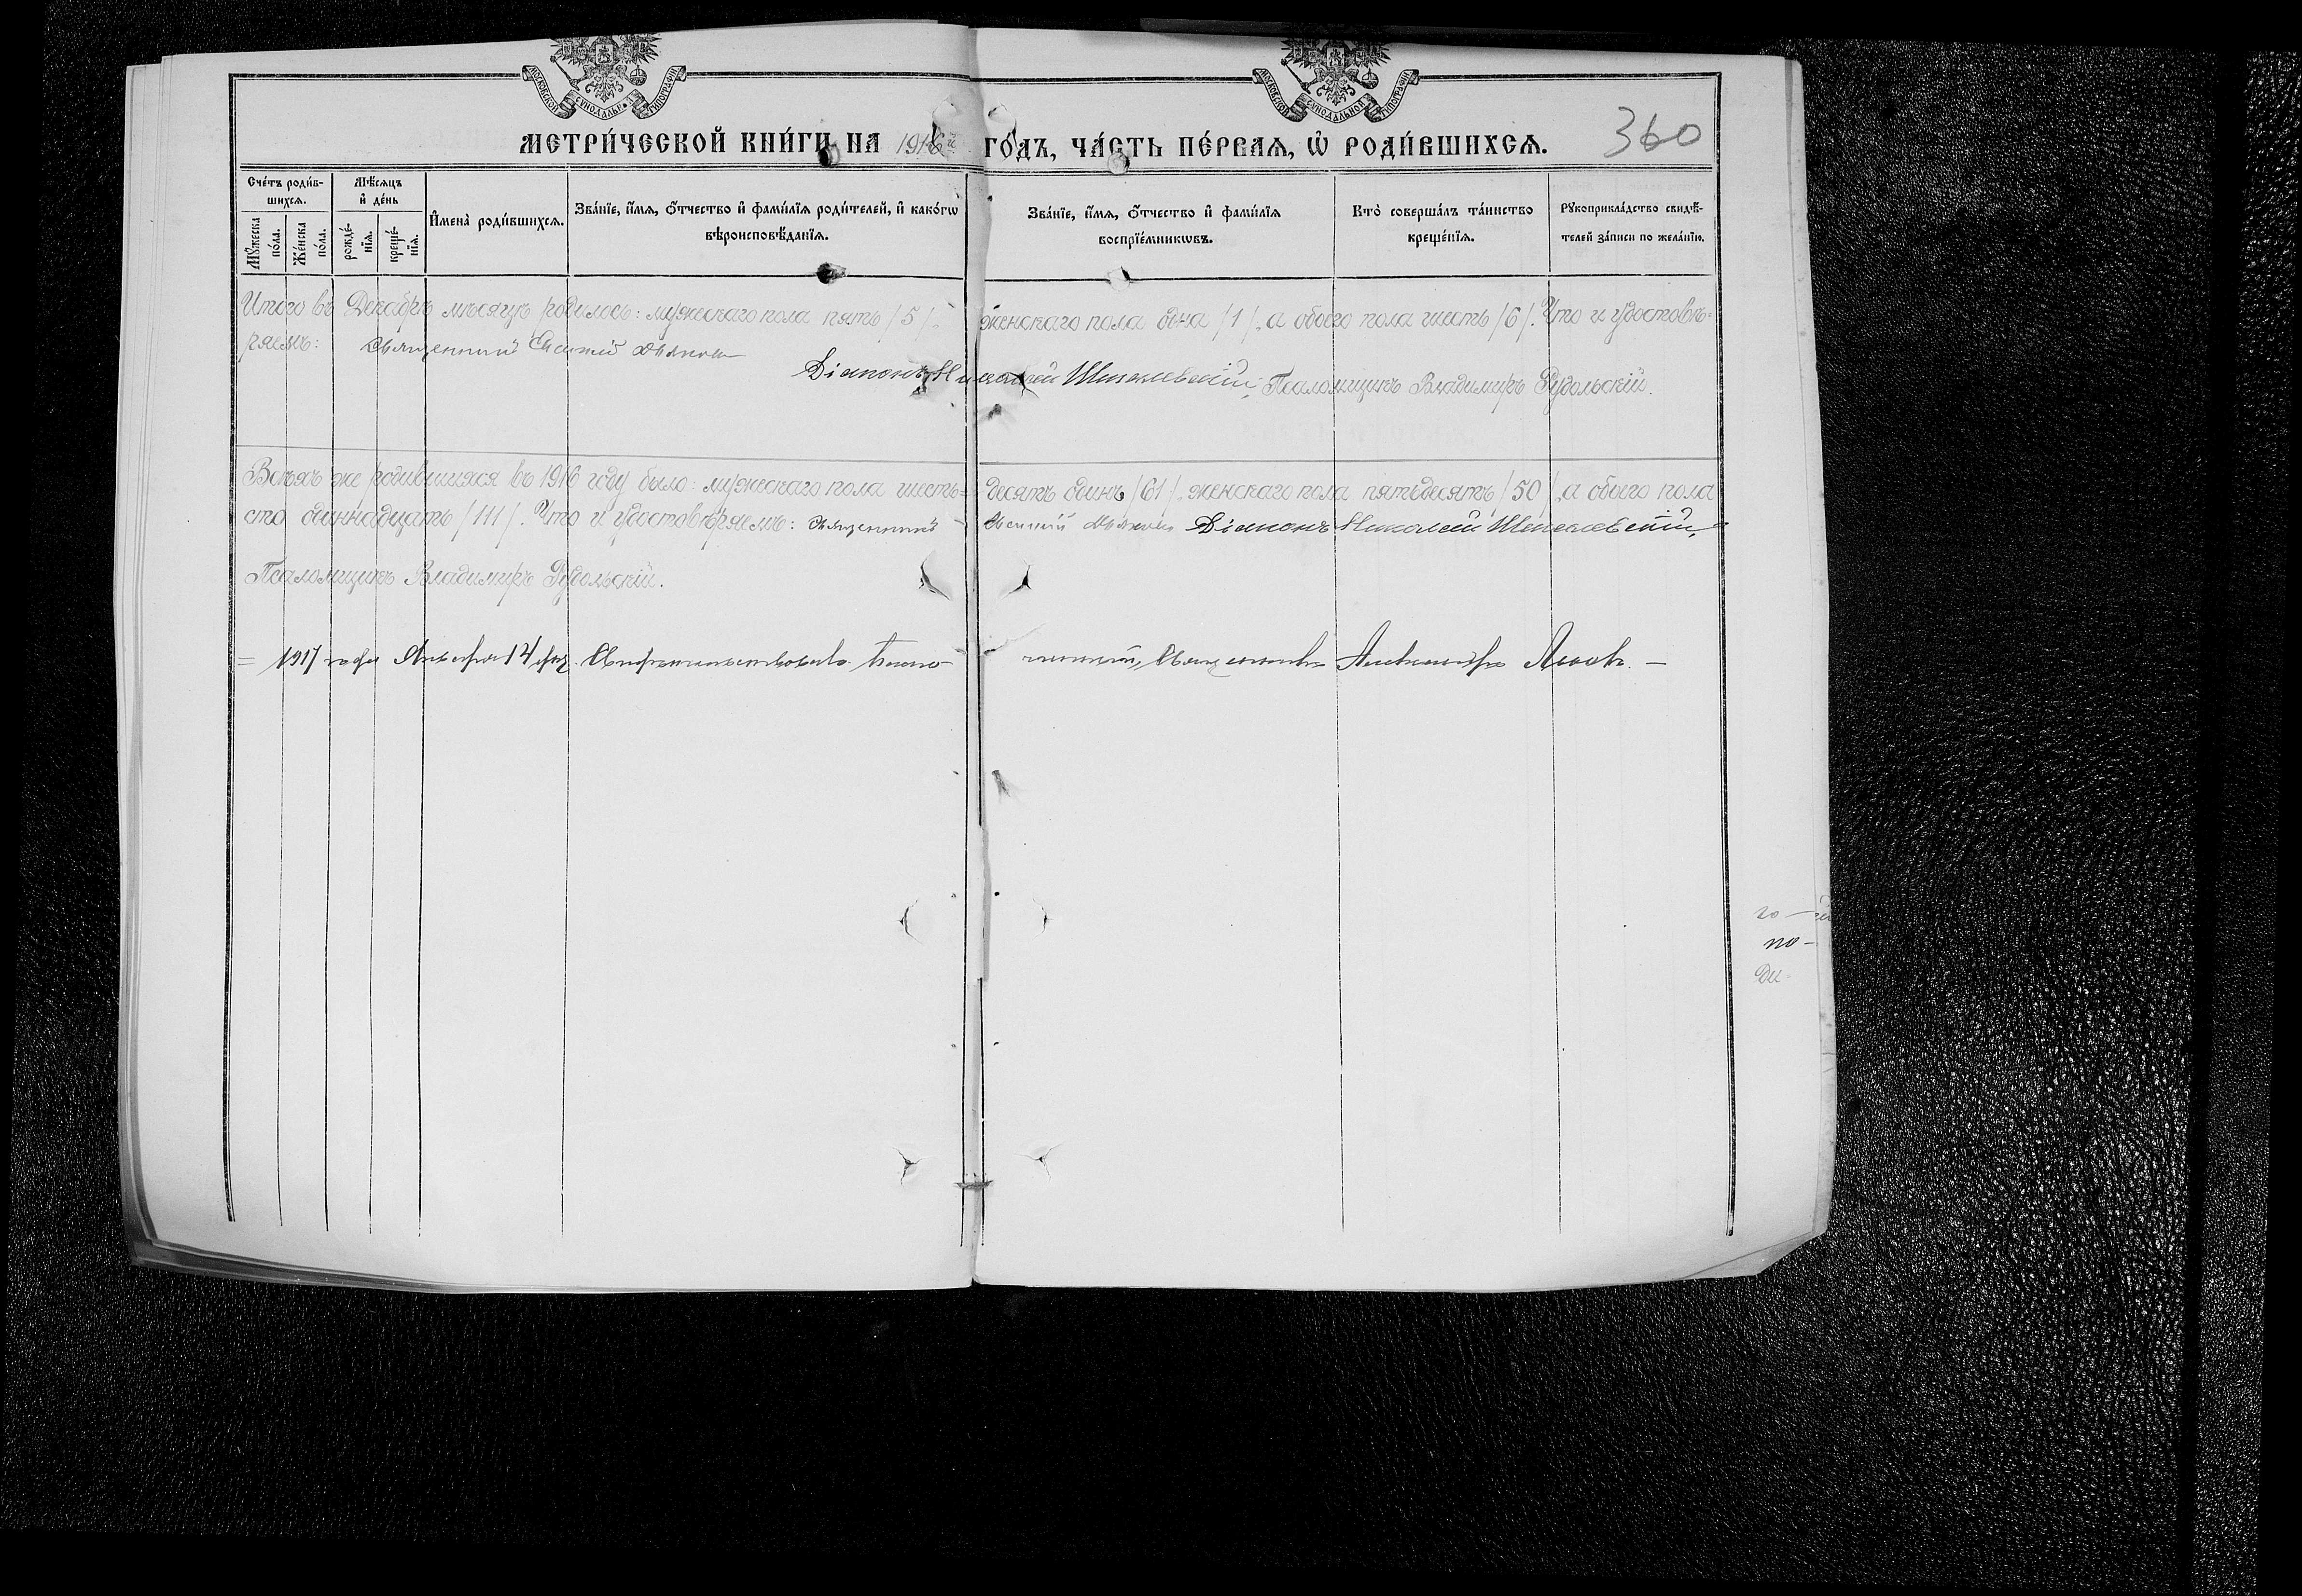 МОСКОВСКОЙ СѴНОДАЛЬНОЙ ТИПОГРАФІИ
МОСКОВСКОЙ СѴНОДАЛЬНОЙ ТИПОГРАФІИ
МЕТРИ́ЧЕСКОЙ КНИ́ГИ НА 1916й ГО́ДЪ, ЧА́СТЬ ПЕ́РВАѦ, Ѡ҆ РОДИ́ВШИХСѦ.
360
Сче́тъ роди́вшихсѧ.
Мѣ́сѧцъ и҆ де́нь
Мꙋ́жеска по́ла.
Же́нска по́ла.
рожде́нїѧ.
креще́нїѧ.
И҆мена̀ роди́вшихсѧ.
Зва́нїе, и҆́мѧ, ѻ҆́тчество и҆ фами́лїѧ роди́телей, и҆ како́гѡ вѣроисповѣ́данїѧ.
Зва́нїе, и҆́мѧ, ѻ҆́тчество и҆ фами́лїѧ воспрїе́мникѡвъ.
Кто̀ соверша́лъ та́инство креще́нїѧ.
Рꙋкоприкла́дство свидѣ́телей за́писи по жела́нїю.
Итого въ Декабрѣ мѣсяцѣ родилось: мужескаго пола пять /5/, женскаго пола одна /1/, а обоего пола шесть /6/. Что и удостовѣ=
ряемъ: Священникъ
Діаконъ Николай Псаломщикъ Владимиръ Рудольскій.
Всѣхъ же родившихся въ 1916 году было: мужескаго пола шесть=десятъ одинъ /61/, женскаго пола пятьдесятъ /50/, а обоего пола
сто одиннадцать /111/. Что и удостовѣряемъ: Священникъ Діаконъ Николай
Псаломщикъ Владимиръ Рудольскій.
= 1917 года Января 14 дня. Свидѣтельствовалъ Благочинный, Священникъ Александръ —
го —
по-
ди-